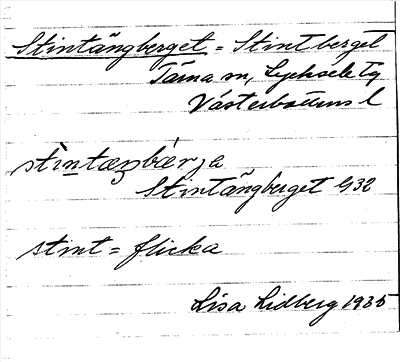 Stintängberget = Stintberget
Tärna sn, Lycksele tg
Västerbottens l
stintæŋbærja
Stintängberget G32
stint = flicka
Lisa Lidberg 1935